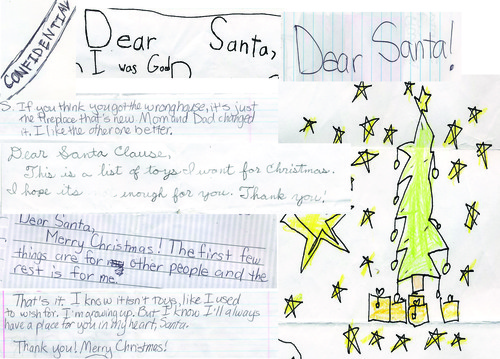 CONFIDENTIAL
Dear Santa,
I was Good
Dear Santa!
S. If you think you got the wrong house, it's just
the fireplace that's new. Mom and Dad changed
it. I like the other one better.
Dear Santa Clause,
This is a list of toys I want for Christmas.
I hope its enough for you. Thank you!
Dear Santa,
Merry Christmas! The first few
things are for other people and the
rest is for me.
That's it. I know it isn't toys, like I used
to wish for. I'm growing up. But I know I'll always
have a place for you in my heart, Santa.
Thank you! Merry Christmas!